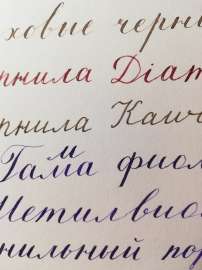 ховые черни
рнила Diam
рнила Кашт
Гамма фиол
Метилвиол
нильный пор